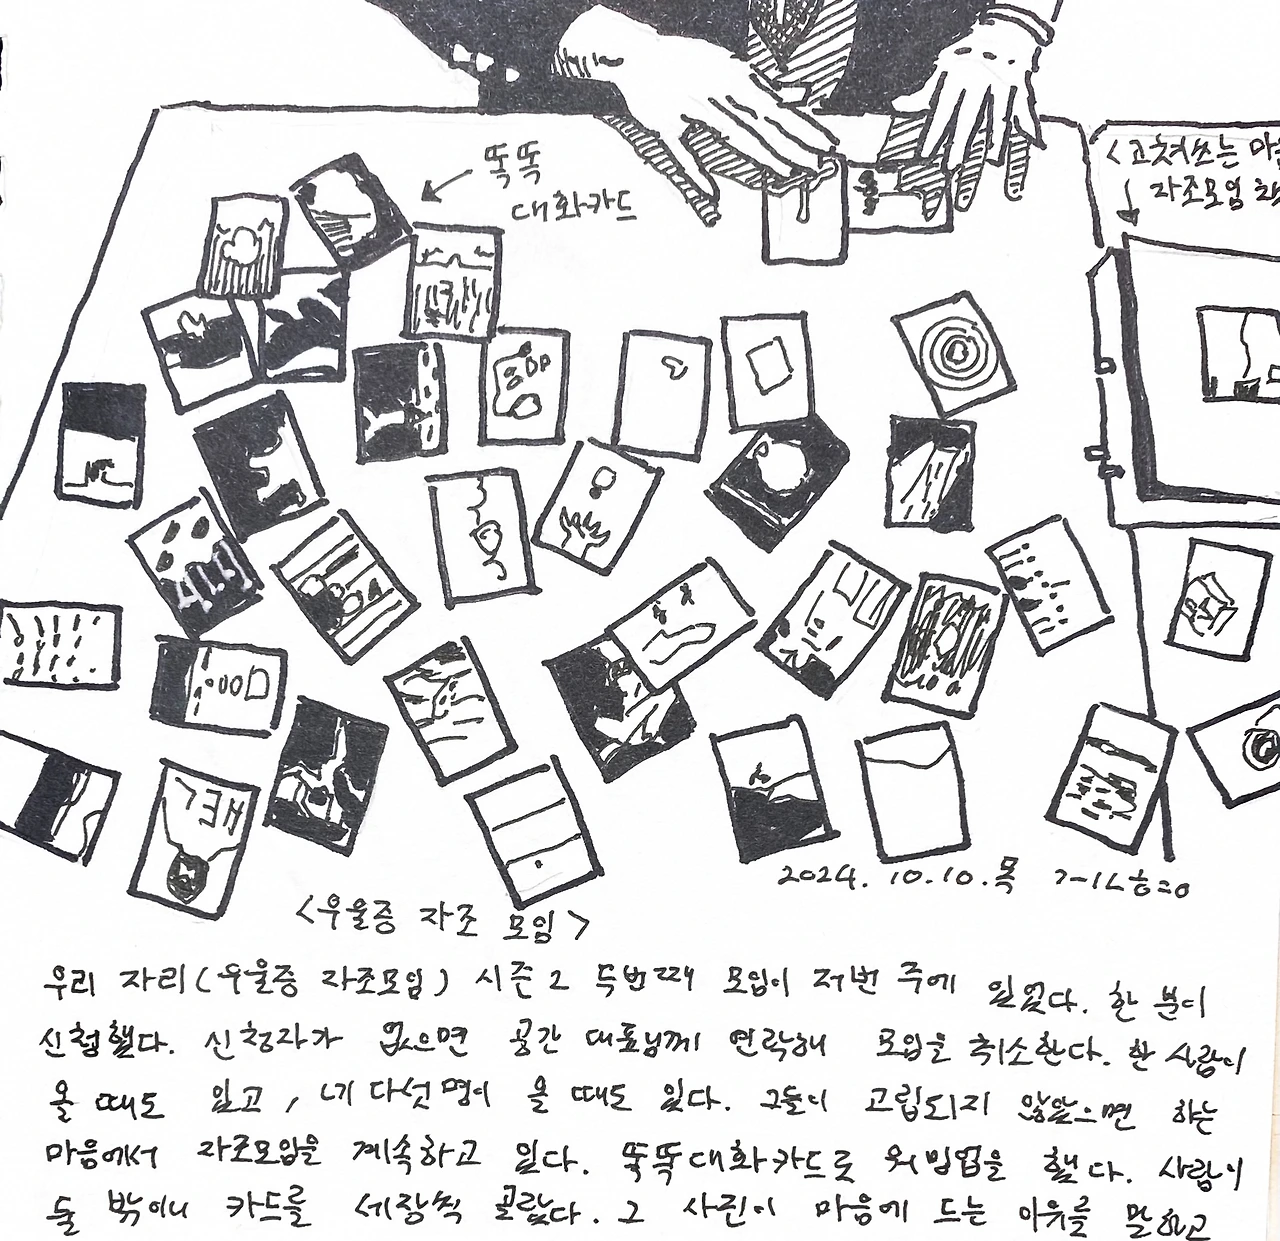 뚝뚝
대화카드
<고쳐쓰는 마음
자조모임 책
2024. 10.10.목
<우울증 자조 모임>
우리 자리(우울증 자조모임) 시즌 2 두번째 모임이 저번 주에 있었다. 한 분이
신청했다. 신청자가 없으면 공간 대표님께 연락해 모임을 취소한다. 한 사람이
올 때도 있고, 네 다섯 명이 올 때도 있다. 그들이 고립되지 않았으면 하는
마음에서 자조모임을 계속하고 있다. 뚝뚝대화카드로 워밍업을 했다. 사람이
둘 밖이니 카드를 세장씩 골랐다. 그 사진이 마음에 드는 이유를 말하고